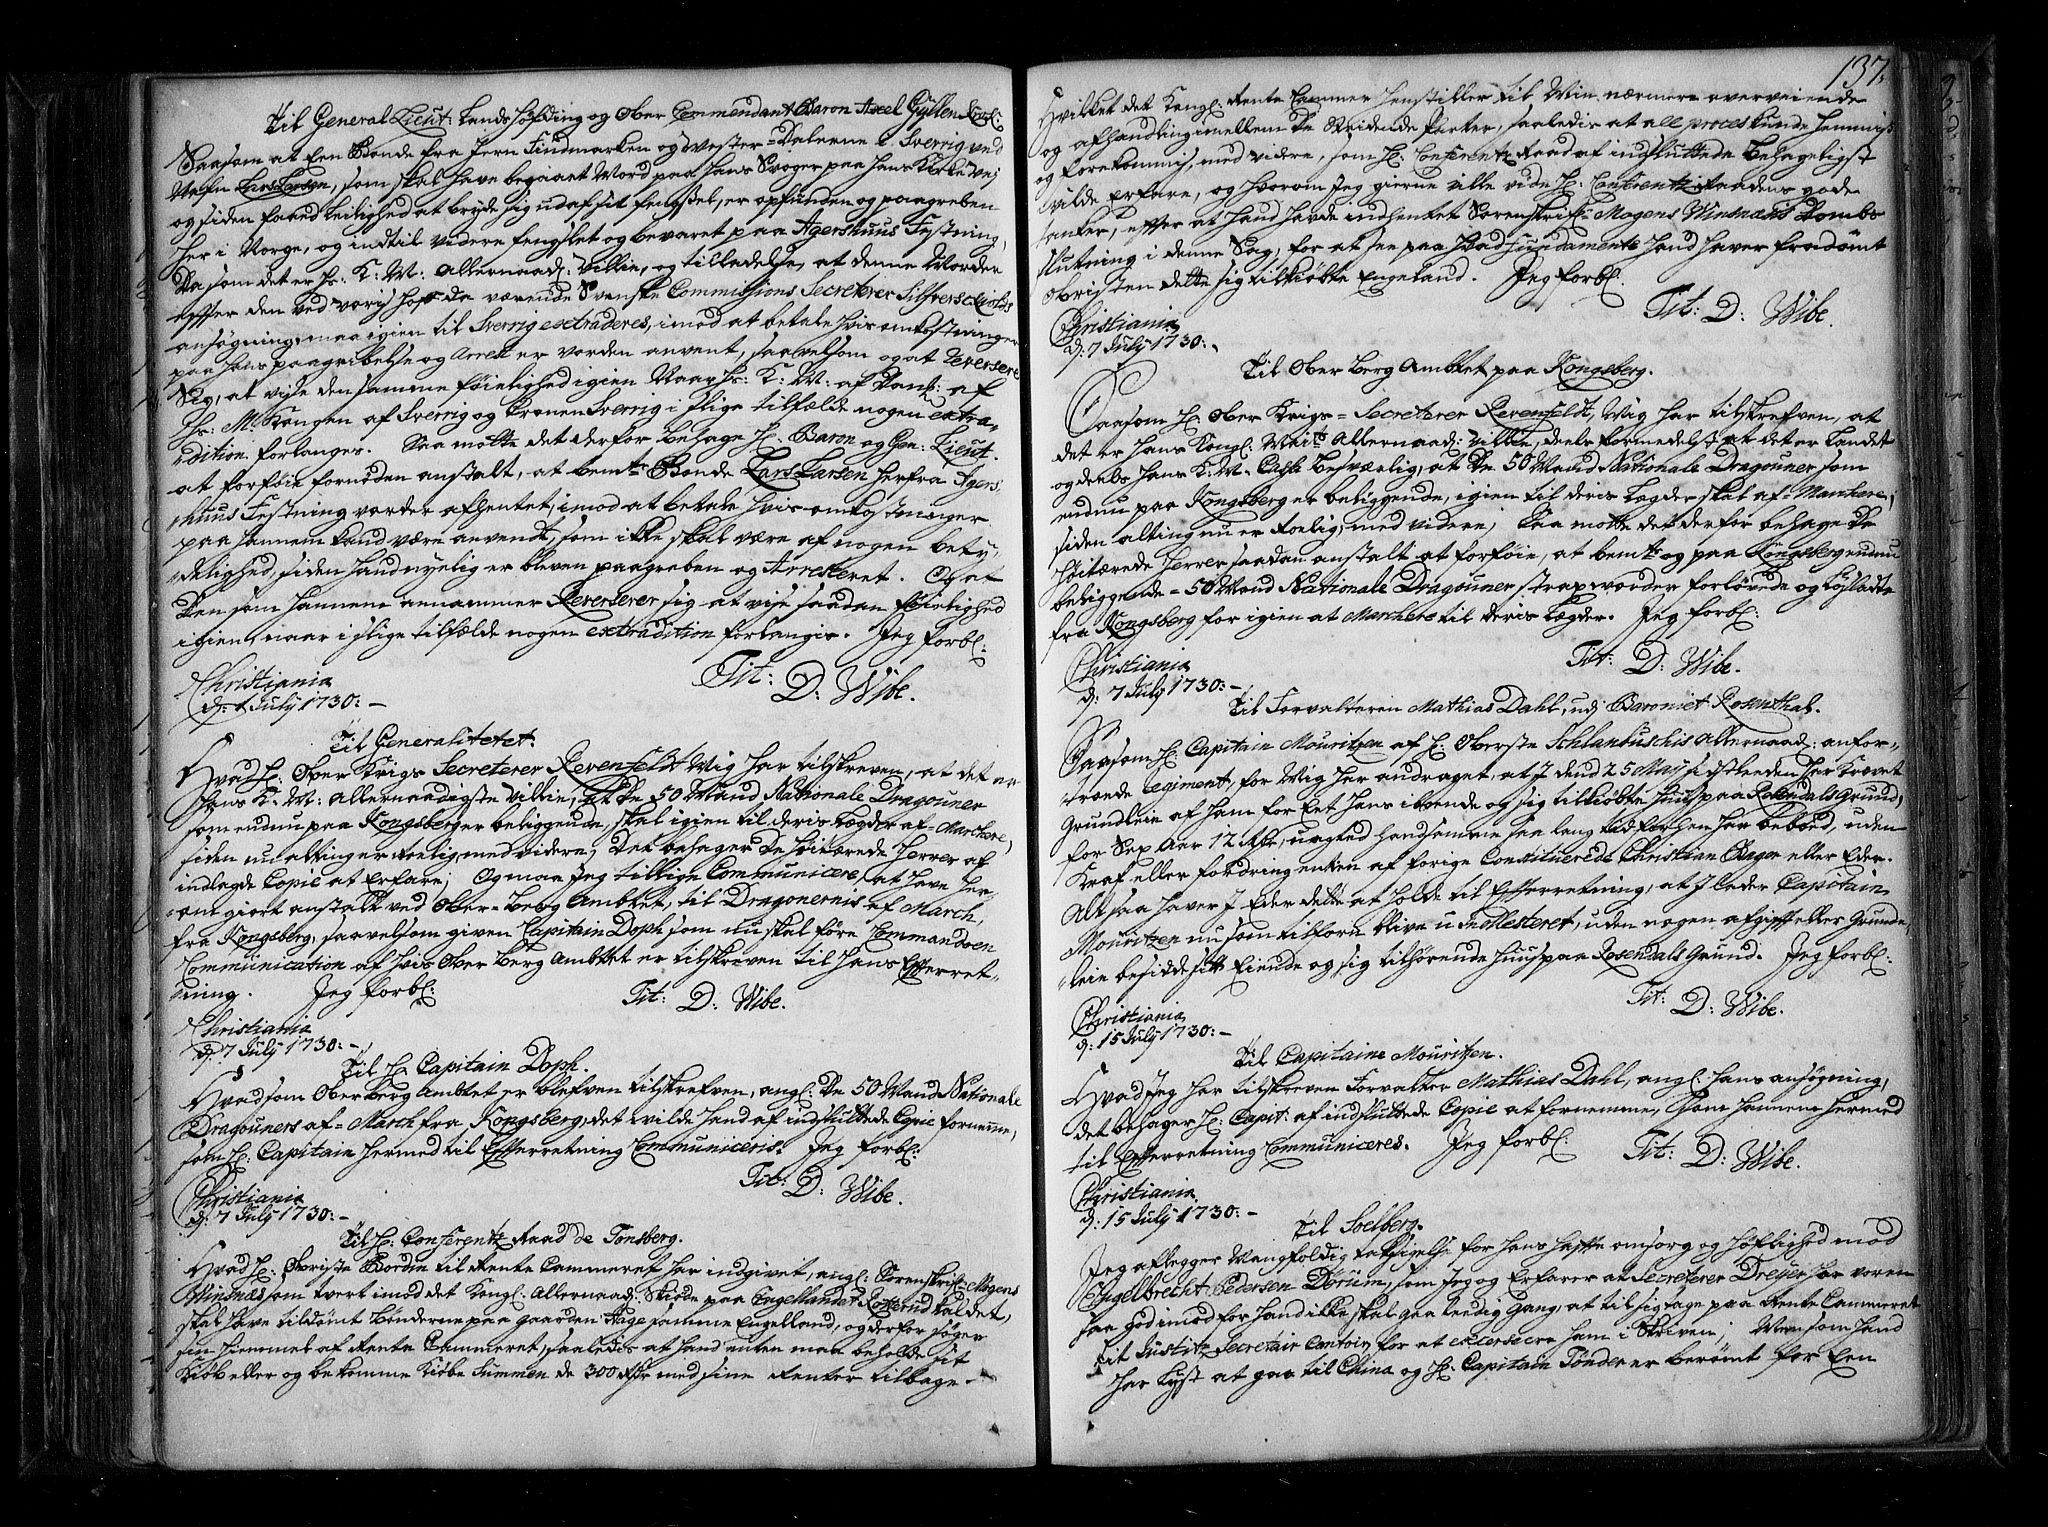 Til General Lieut: Landshöfding og Ober Commendant Baron Axel Gyllen Krok:
Saasom at Een Bonde fra Jern Findmarken og Vester-Dalerne i Sverrig ved
Nafn Lars Larsen, som skal have begaaet Mord paa hans Svoger paa hans Kirke Vej
og siden faaed leilighed at bryde sig ud af sit fengsel, er opfunden og paagreben
her i Norge, og indtil videre fengslet og bevaret paa Agershuus Festning,
Da som det er Hs: K: M: allernaad: Villie, og tilladelse, at denne Morder
efter den ved voris Hoff da værende Svenske Commissions Secreterer Silfverschiolds
ansøgning, maa igien til Sverrig extraderes, imod at betale hvis omkostninger
paa hans paagribelse og Arrest er vorden anvent, saavelsom og at Reversere
Sig, at vise den samme føielighed igien Naar Hs: K: M: af Dank: af
Hs: M: Kongen af Sverrig og Cronen Sverrig i slige tilfælde nogen extra-
dition forlanges. Saa motte det derfor behage H: Baron og Gen: Lieut.
at forføie fornøden anstalt, at bemte Bonde Lars Larsen herfra Agers-
huus Festning vorder afhentet, imod at betale hvis omkostninger
paa hannem kand være anvendt, som ikke skal være af nogen bety-
delighed, siden hand nyelig er bleven paagreben og Arresteret. Og at
den som hannem annammer Reverserer sig at vise saadan føielighed
igien, naar i slige tilfælde nogen extradition forlangis. Jeg forbl:
Christiania
d: 1 July 1730:
Tit: D: Wibe.
Til Generalitetet:
Hvad H: Ober Krigs Secreterer Revenfeldt Mig har tilskreven, at det er
Hans K: M: allernaadigste Villie, at de 50 Mand Nationale Dragouner
som endnu paa Kongsberg er beliggende, skal igien til deris Legder af-Marchere,
siden nu alting er roelig, med videre, Det behager De Høitærede Herrer af
indlagde Copie at Erfare; Og maa Jeg tillige Communicere, at have her-
om giort anstalt ved Ober-Berg Ambtet, til Dragonernis af March,
fra Kongsberg, saavelsom given Capitain Doph som nu skal føre Commandoen
Communication af hvis Ober Berg Ambtet er tilskreven til hans Efterret-
ning. Jeg forbl:
Tit: D: Wibe.
Christiania
d: 7 July 1730:
Til H: Capitain Doph.
Hvad som Ober Berg Ambtet er blefven tilskrefven, angl: De 50 Mand Nationale
Dragouners af-March fra Kongsberg, det vilde Hand af indsluttede Copie fornemme,
som H: Capitain hermed til Efterretning Communiceris. Jeg forbl:
Tit: D: Wibe.
Christiania
d: 7 July 1730:
Til H: Conferentz Raad de Tonsberg.
Hvad H: Obriste Bordin til Rente Cammeret har indgivet, angl: Sorenskrifr Mogens
Winsnæs som tvert imod det Kongl: Allernaad: Skiøde paa Engellandet Rotterud kaldet,
skal have tildømt bønderne paa gaarden Hage samme Engelland, og derfor søger
sin hiemmel af Rente Cammeret, saaledis at hand enten maa beholde sit
Kiøb eller og bekomme Kiøbe Summen de 300 Rdr med sine Renter tilbage.
137.
Hvilket det Kongl: Rente Cammer henstiller til Min nærmere overveiende
og afhandling imellem de Stridende Parter, saaledis at all proces kunde hemmis
og forekommis, med videre, som H: Conferentz Raad af indsluttede behageligst
vilde Erfare, og hvorom Jeg gierne ville vide H: Conferentz Raadens gode
tanker, efter at hand havde indhentet Sorenskrifr Mogens Winsnæsis Dombs
slutning i denne Sag, for at see paa hvad fundamente hand haver fradømt
Obristen dette sig tilkiøbte Engeland. Jeg forbl:
Tit: D: Wibe.
Christiania
d: 7 July 1730:
Til Ober Berg Ambtet paa Kongsberg.
Saasom H: Ober Krigs-Secreterer Revenfeldt, Mig har tilskrefven, at
det er Hans Kongl: Maits Allernaad: Villie, deels formedelst at det er Landet
og deels Hans K: M: Casse besværlig, at De 50 Mand Nationale Dragouner som
endnu paa Kongsberg er beliggende, igien til deris Legder skal af-Marchere,
siden alting nu er roelig, med videre; Saa motte det derfor behage De
Høitærede Herrer saadan anstalt at forføie, at bemte og paa Kongsberg endnu
beliggende-50 Mand Nationale Dragouner strax vorder forløvede og Løsladte
fra Kongsberg for igien at Marchere til deris Legder. Jeg forbl:
Tit: D: Wibe.
Christiania
d: 7 July 1730:
Til Forvalteren Mathias Dahl, udj Baroniet Rosenthal.
Saasom H: Capitain Mouritzen af H: Oberste Schlanbuschis allernaad: anfor-
troede Regiment, for Mig har andraget, at J dend 25 Maj sidstleeden har Krevet
Grundleie af ham for Eet hans iboende og sig tilkiøbte Huus paa Rosendals Grund,
for Sex Aar 12 Rdr, uagted hand samme saa lang tid forhen har beboed, uden
Kraf eller fordring enten af forige Constituerede Christian Bager eller Eder.
Altsaa haver J Eder dette at holde til Efterretning, at J lader Capitain
Mouritzen nu som tilforn blive u-mollesteret, uden nogen afgift eller Grunde-
leie besidde sit Eiende og sig tilhørende Huus paa Rosendals Grund. Jeg forbl:
Tit: D: Wibe.
Christiania
d: 15 July 1730:
Til Capitaine Mouritzen.
Hvad Jeg har tilskreven Forvalter Mathias Dahl, angl: hans ansøgning,
det behager H: Capit: af indsluttede Copie at fornemme, som hannem hermed
til Efterretning Communiceres. Jeg forbl:
Tit: D: Wibe.
Christiania
d: 15 July 1730:
Til Soelberg.
Jeg aflegger Mangfoldig taksigelse for hans hafte omsorg og høflighed mod
Engelbrecht Pedersen Dorum, som Jeg og Erfarer at Secreterer Dreyer har voren
saa god imod for hand ikke skal gaa leedig gang, at til sig tage paa Rente Cammeret
til Justitz Secretair Contoir for at excersere ham i Skriven; Men som hand
har Lyst at gaa til China og H: Capitain Tønder er berømt for Een